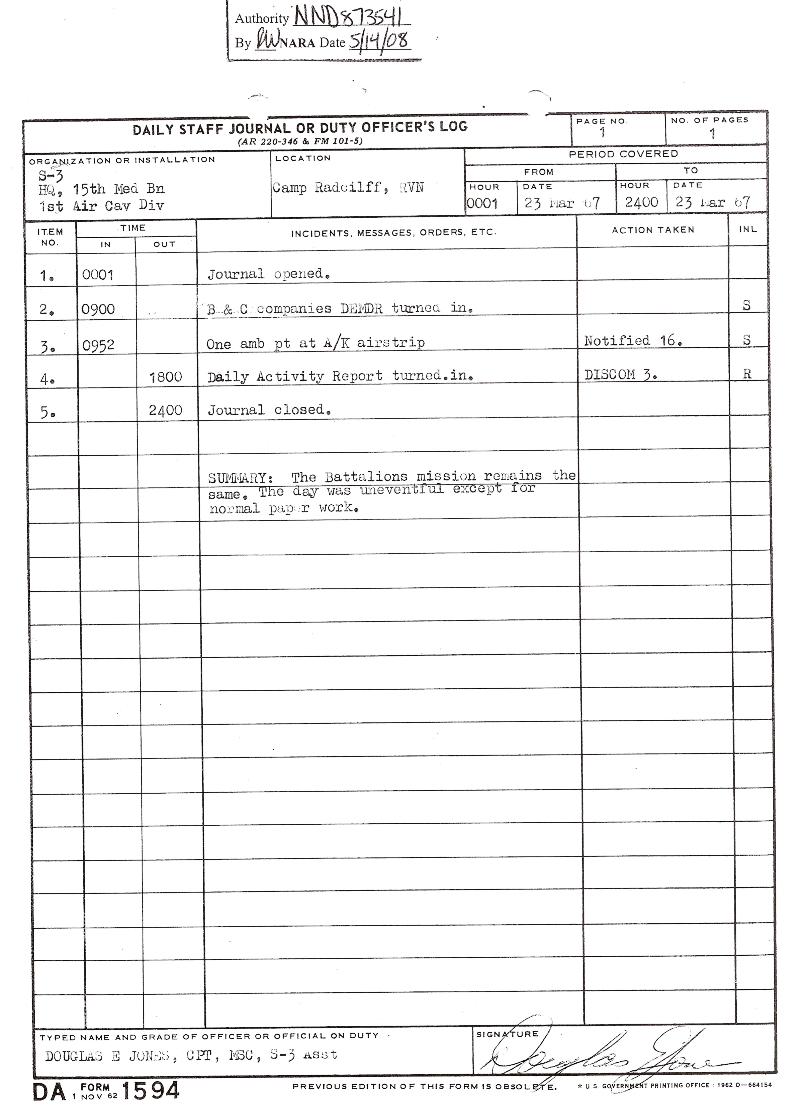 Authority NND873541
By NARA Date 5/14/08
DAILY STAFF JOURNAL OR DUTY OFFICER'S LOG
(AR 220-346 & FM 101-5)
PAGE NO.
1
NO. OF PAGES
1
ORGANIZATION OR INSTALLATION
S-3
HQ, 15th Med Bn
1st Air Cav Div
LOCATION
Camp Radcilff, RVN
PERIOD COVERED
FROM
TO
HOUR
0001
DATE
23 Mar 67
HOUR
2400
DATE
23 Mar 67
ITEM NO.
TIME
IN
OUT
INCIDENTS, MESSAGES, ORDERS, ETC.
ACTION TAKEN
INL
1. 0001 Journal opened.
2. 0900 B & C companies DEMDR turned in. S
3. 0952 One amb pt at A/K airstrip Notified 16. S
4. 1800 Daily Activity Report turned.in. DISCOM 3. R
5. 2400 Journal closed.
SUMMARY: The Battalions mission remains the
same. The day was uneventful except for
normal paper work.
TYPED NAME AND GRADE OF OFFICER OR OFFICIAL ON DUTY
DOUGLAS E JONES, CPT, MSC, S-3 Asst
SIGNATURE
Douglas E Jones
DA FORM 1 NOV 62 1594
PREVIOUS EDITION OF THIS FORM IS OBSOLETE.
* U S GOVERNMENT PRINTING OFFICE : 1962 O—664154